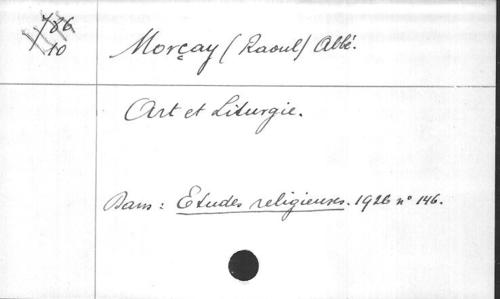 786
10
Morçay (Raoul) Abbé.
Art et Liturgie.
Dans : Etudes religieuses. 1926 n° 146.